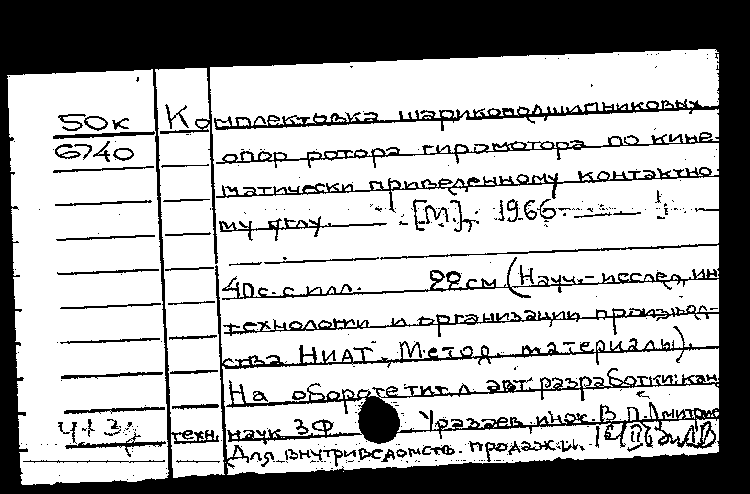 50к Комплектовка шарикоподшипниковых
6740 опор ротора гиромотора по кине-
матически приведенному контактно-
му углу. [М.], 1966.
40с. с илл. 22см (Науч.-исслед. ин
технологии и организации производ-
ства НИАТ. Метод. материалы).
На обороте тит. л. авт. разработки: кан
техн. наук З.Ф. Уразаев, инж. В.П.
Для внутриведомств. продажи.